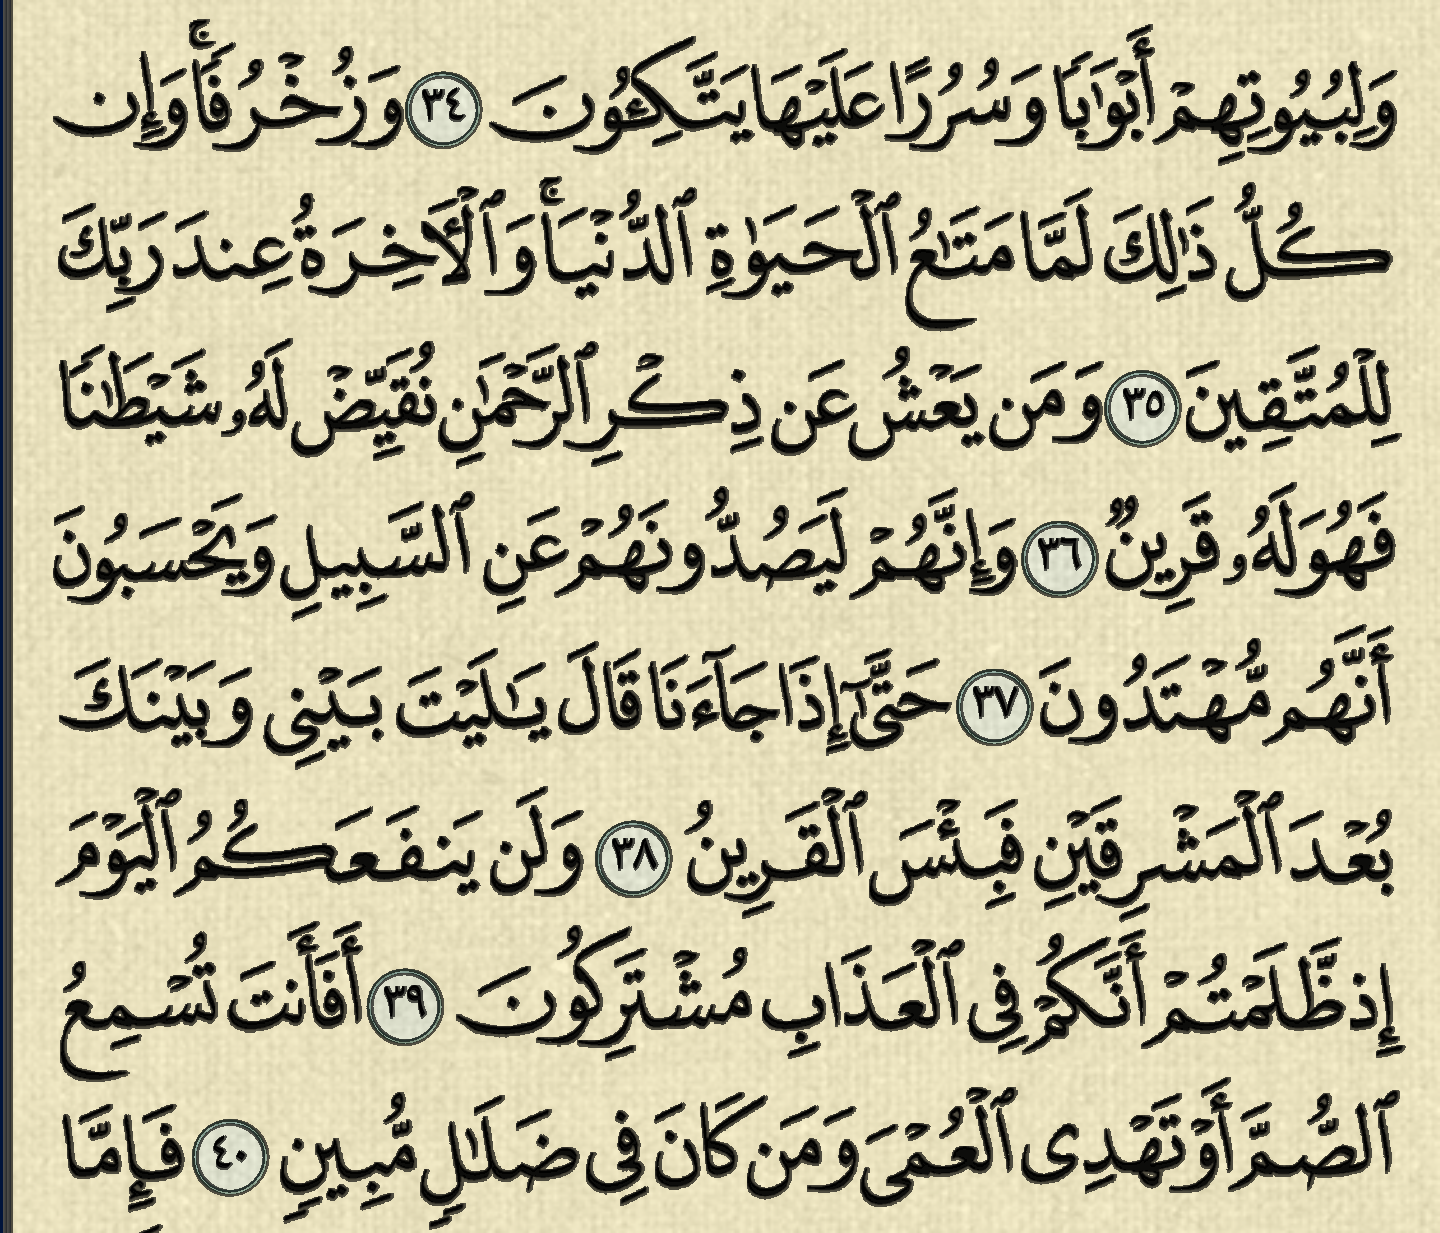 وَلِبُيُوتِهِمْ أَبْوَٰبًا وَسُرُرًا عَلَيْهَا يَتَّكِـُٔونَ ٣٤ وَزُخْرُفًا ۚ وَإِن
كُلُّ ذَٰلِكَ لَمَّا مَتَـٰعُ ٱلْحَيَوٰةِ ٱلدُّنْيَا ۚ وَٱلْـَٔاخِرَةُ عِندَ رَبِّكَ
لِلْمُتَّقِينَ ٣٥ وَمَن يَعْشُ عَن ذِكْرِ ٱلرَّحْمَـٰنِ نُقَيِّضْ لَهُۥ شَيْطَـٰنًا
فَهُوَ لَهُۥ قَرِينٌ ٣٦ وَإِنَّهُمْ لَيَصُدُّونَهُمْ عَنِ ٱلسَّبِيلِ وَيَحْسَبُونَ
أَنَّهُم مُّهْتَدُونَ ٣٧ حَتَّىٰٓ إِذَا جَآءَنَا قَالَ يَـٰلَيْتَ بَيْنِى وَبَيْنَكَ
بُعْدَ ٱلْمَشْرِقَيْنِ فَبِئْسَ ٱلْقَرِينُ ٣٨ وَلَن يَنفَعَكُمُ ٱلْيَوْمَ
إِذ ظَّلَمْتُمْ أَنَّكُمْ فِى ٱلْعَذَابِ مُشْتَرِكُونَ ٣٩ أَفَأَنتَ تُسْمِعُ
ٱلصُّمَّ أَوْ تَهْدِى ٱلْعُمْىَ وَمَن كَانَ فِى ضَلَـٰلٍ مُّبِينٍ ٤٠ فَإِمَّا